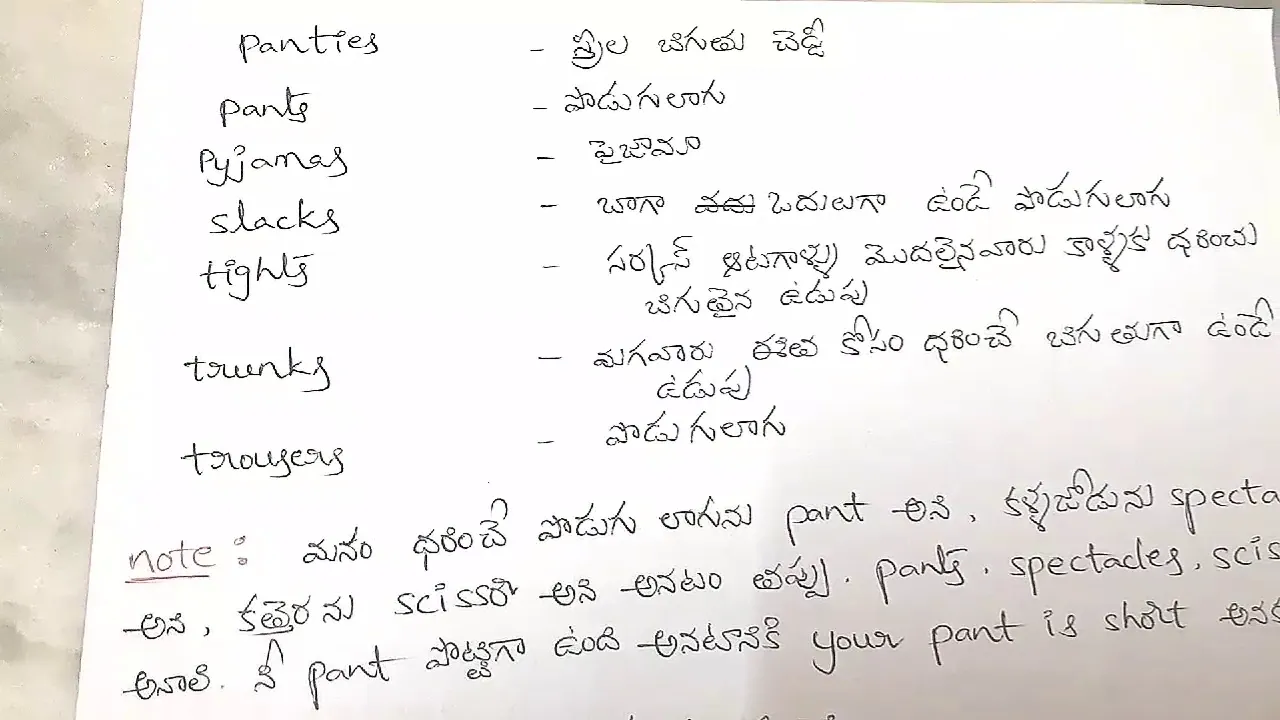 panties - స్త్రీల బిగుతు చెడ్డీ
pants - పొడుగులాగు
Pyjamas - పైజామా
slacks - బాగా ఒదులుగా ఉండే పొడుగులాగు
tights - సర్కస్ ఆటగాళ్ళు మొదలైనవారు కాళ్ళకు ధరించు
బిగుతైన ఉడుపు
trunks - మగవారు ఈత కోసం ధరించే బిగుతుగా ఉండే
ఉడుపు
trousers - పొడుగులాగు
note : మనం ధరించే పొడుగు లాగును pant అని, కళ్ళజోడును specta
అని, కత్తెరను scissor అని అనటం తప్పు. pants, spectacles, scis
అనాలి. నీ pant పొట్టిగా ఉంది అనటానికి your pant is short అనక